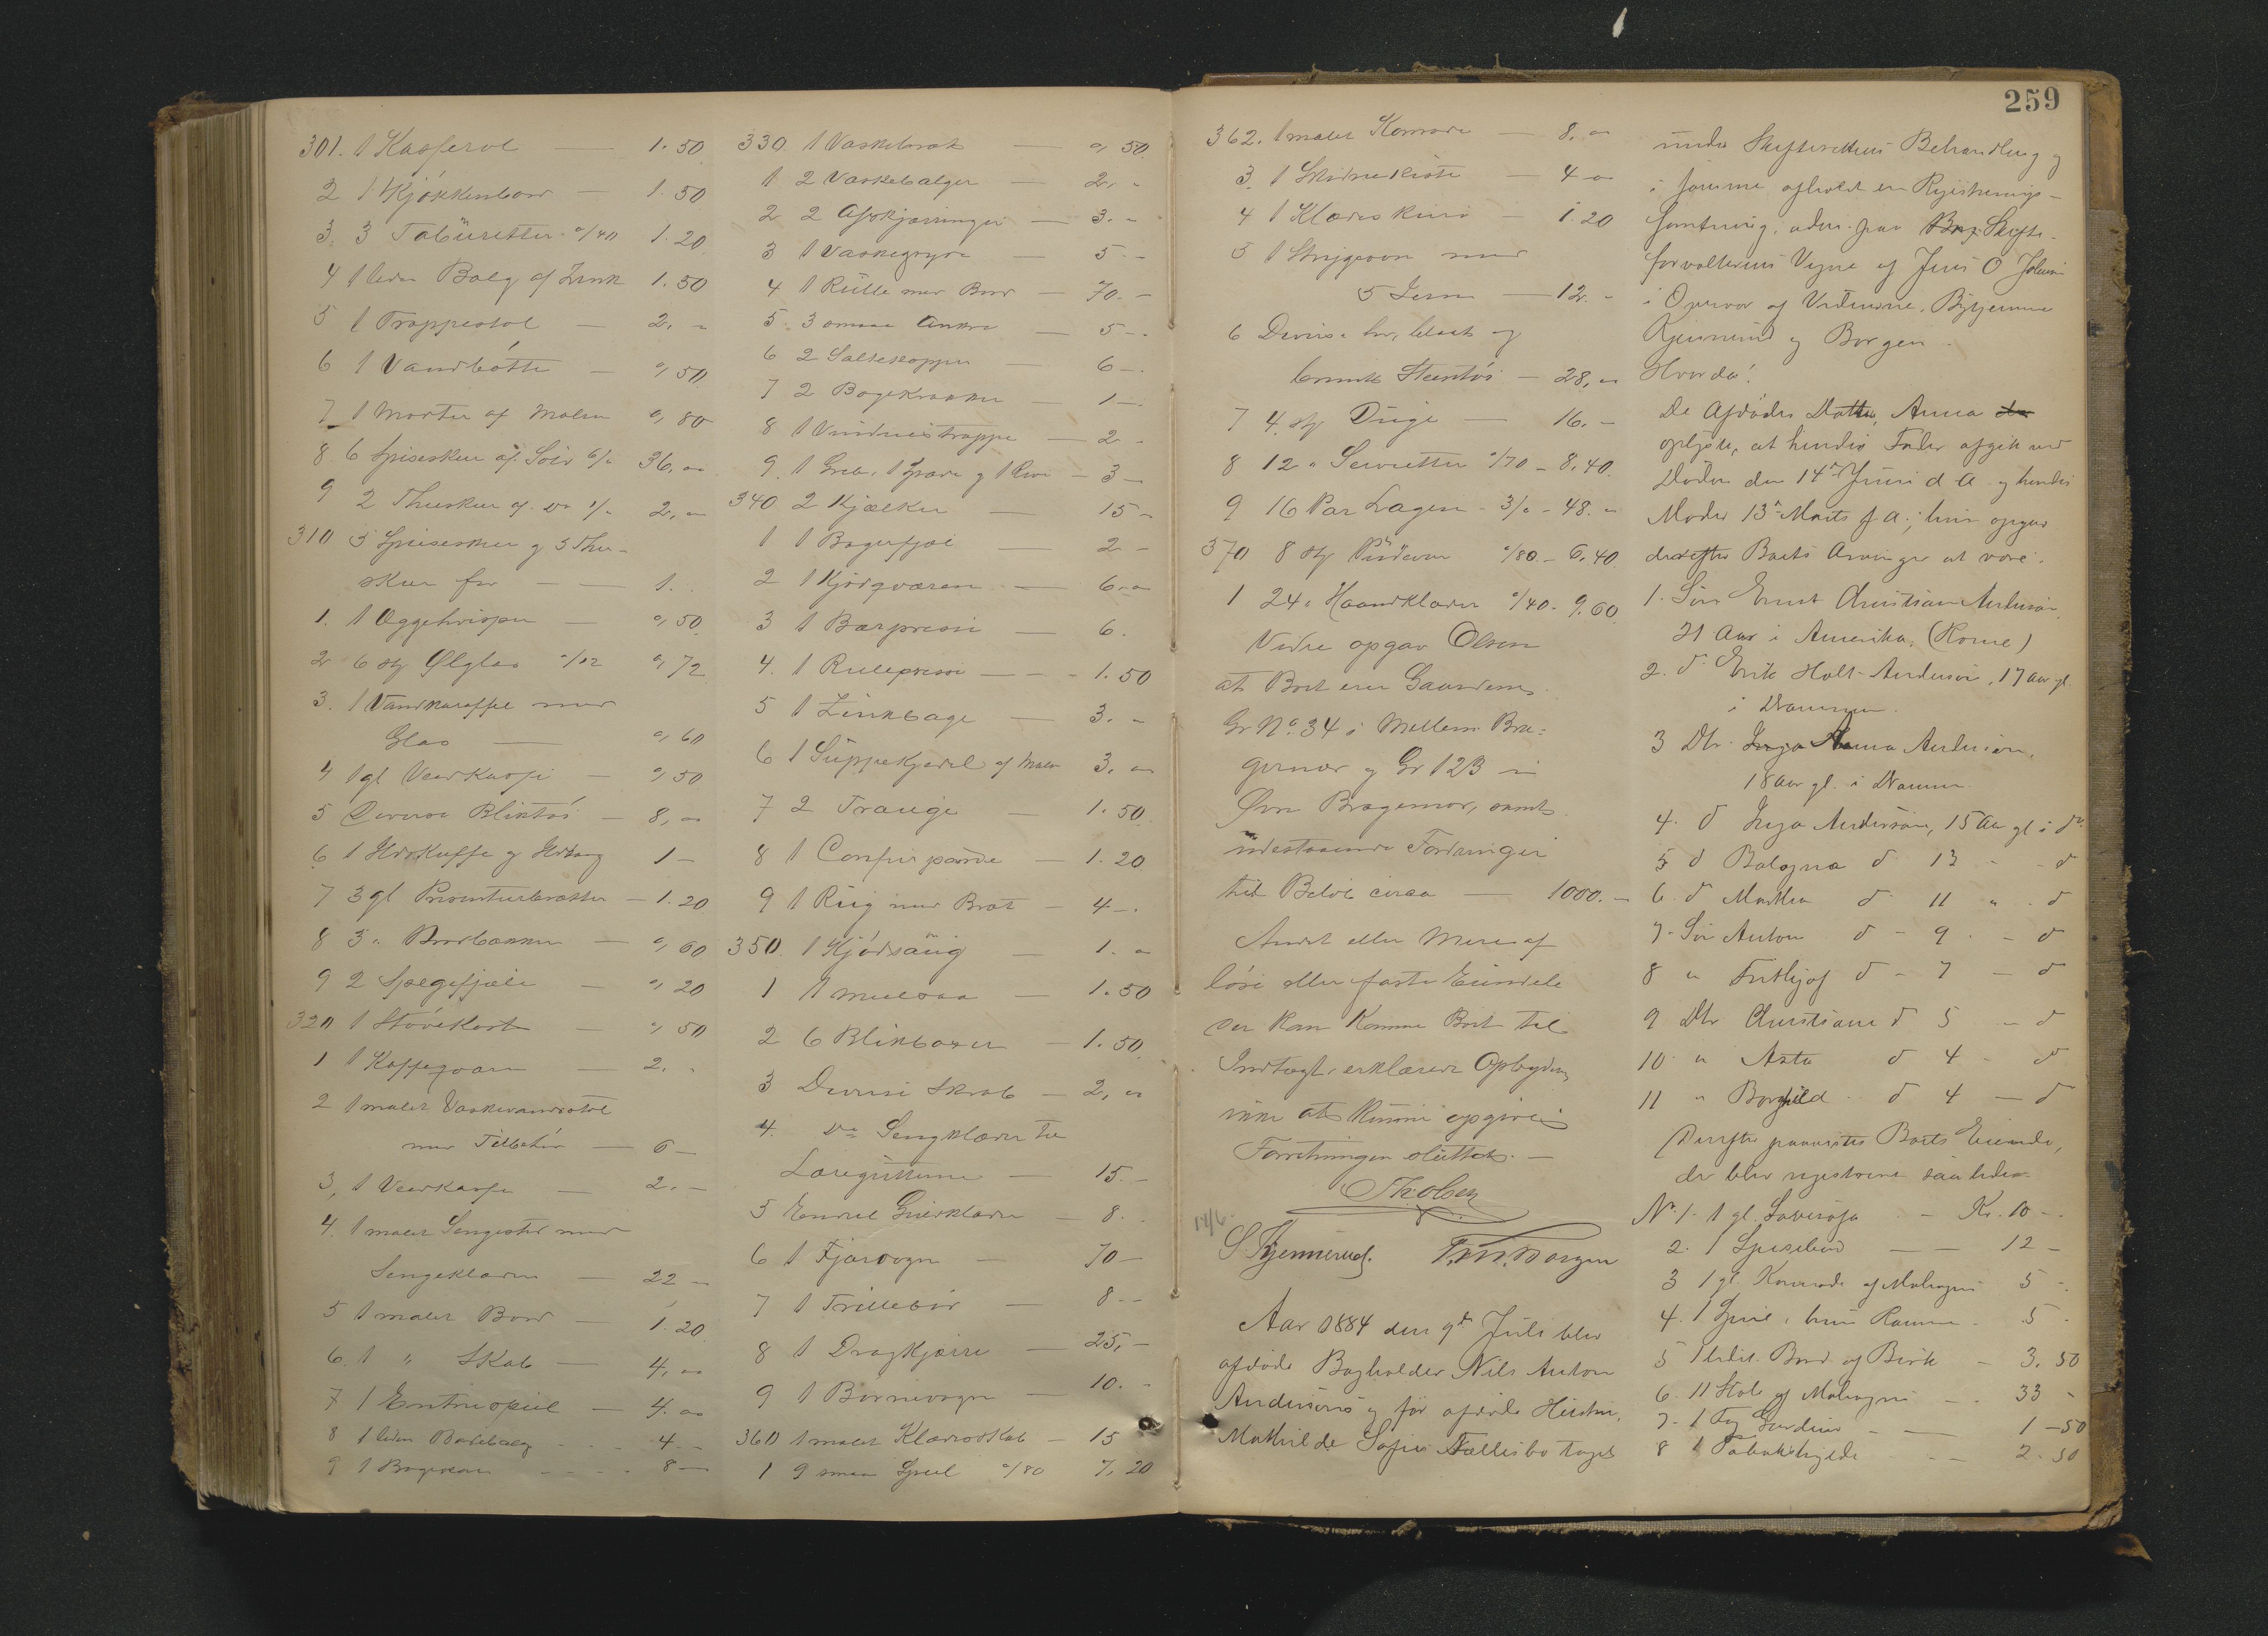 301. 1 Kasserol — 1.50
2 1 Kjøkkenbord — 1.50
3. 3 Tabüretter a/40 1.20
4 1 liden Balg af Zink 1.50
5 1 Trappestol — 2, "
6 1 Vandbötte — ", 50
7 1 Morter af Malm ", 80
8 6 Spiseskeer af Sölv 6/" 36, "
9 2 Theskeer af do 1/" 2, "
310 3 Spiseskeer og 3 The-
skeer for — 1.
1. 1 Æggehvisper — ", 50
2 6 st Ølglas "/12 ", 72
3. 1 Vandkaraffel med
Glas — ", 60
4 1 gl Vedkasse — ", 50
5 Diverse Bliktöi — 8, "
6 1 Ildskuffe og Ildtang 1 —
7 3 gl Presenteerbretter — 1.20
8 3 " Brødbakker — ", 60
9 2 Spegefjæle — ", 20
320 1 Støvekost — ", 50
1 1 Kaffeqværn — 2. "
2 1 malet Vaskevandsstol
med Tilbehör — 6 —
3, 1 Vedkasse — 2. —
4. 1 malet Sengested med
Sengeklæder — 22 —
5 1 malet Bord — 1.20
6. 1 " Skab — 4, "
7 1 Entrespeil — 4. "
8 1 liden Badebalg — 4 —
9 1 — 8 —
330. 1 Vaskebræt — ", 50
1 2 Vaskebalger — 2, "
2 2 Afskjæringer — 3. "
3 1 Vaskegryde — 5 —
4 1 Rülle med Bord — 70. —
5. 3 smaa Ankre — 5 —
6 2 Saltekopper — 6 —
7 2 Bagekrakker — 1 —
8 1 Vinduestrappe — 2 —
9. 1 Greb, 1 Spade og 1 Rive — 3 —
340 2 Kjælker — 15 —
1 1 Bagefjæl — 2 —
2 1 Kjödqværn — 6. "
3 1 Bærpresse — 6.
4. 1 Rullepresse — 1.50
5 1 Zinkbage — 3. —
6 1 Süppekjedel af Malm 3. "
7 2 Trauge — 1.50
8 1 Confirpande — 1.20
9 1 Rüg med Bræt — 4 —
350. 1 Kjödsaüg — 1. "
1 1 — 1.50
2 6 Blikboxer — 1.50
3 Diverse Skrab — 2, "
4. do Sengklæder til
Læregütterne — 15. —
5 Endel Gulvklæder — 8.
6 1 Fjærvogn — 70 —
7 1 Trillebör — 8 —
8 1 Dragkjærre — 25, —
9 1 Börnevogn — 10. —
360 1 malet Klædesskab — 15
1 9 smaa Speil "/80 7, 20
362. 1 malet Komode — 8, "
3. 1 Skidnekiste — 4 "
4 1 Klædeskurv — 1.20
5 1 Strygeovn med
5 Jern — 12. "
6 Diverse hv, blaat og
brunt Stentöi — 28, "
7 4 st Düge — 16. —
8 12 " Servietter "/70 — 8,40
9 16 Par Lagen — 3/" — 48. "
370 8 st Püdevar "/80 — 6,40
1 24 " Haandklæder "/40 — 9.60
Videre opgav Olsen
at Boet eier Gaardene
Gr No. 34 i Mellem Bra-
gernæs og Gr 123 i
Øvre Bragernæs, samt
üdestaaende Fordringer
til Beløb circa — 1000. —
Andet eller Mere af
løse eller faste Eiendele
der kan komme Boet til
Indtægt erklærede Opbyderen
ikke at künne opgives
Forretningen slüttet. —
Th Olsen
14/6.
S Kjennerud. T. M. Borgen
Aar 1884 den 9de Juli blev
afdöde Bogholder Nils Anton
Andersens og för afdöde Hüstru,
Mathilde Sofies Fællesbo taget
259
ünder Skifterettens Behandling og
i samme afholdt en Registrerings-
forretning, adm. paa Skifte-
forvalterens Vegne af Jens O Johnsen
i Overvær af Vidnerne,
Kjennerud og Borgen.
Hvorda:
De Afdödes Datter, Anna
oplyste, at hendes Fader afgik ved
Döden den 14de Juni d A og hendes
Moder 13de Marts f A; hun opgav
derefter Boets Arvinger at være:
1. Sön Ernst Christian Andersen,
21 Aar i Amerika. (Rome)
2. do Erik Holt-Andersen, 17 Aar gl.
i Drammen.
3 Dtr. Anna Andersen,
18 Aar gl. i Drammen
4. do Inga Andersen, 15 Aar gl i do
5 do Balogna do 13 " — do
6. do Martha do 11 " — do
7. Sön Anton do — 9 — do
8 " Frithjof do — 7 — do
9 Dtr Christiane do 5 — do
10 " Asta do 4 — do
11 " Borghild do 4 — do
Derefter paavistes Boets Eiendele,
der blev registreret saaledes.
No. 1. 1 gl. — Kr. 10 —
2. 1 Spisebord — 12 —
3 1 gl. Komode af Mahogni 5 —
4. 1 Speil i brun Ramme — 5 —
5 1 lidet Bord af Birk — 3.50
6. 11 Stole af Mahogni — 33 —
7. 1 Fag Gardiner — 1 — 50
8 1 Tobakshylde — 2.50